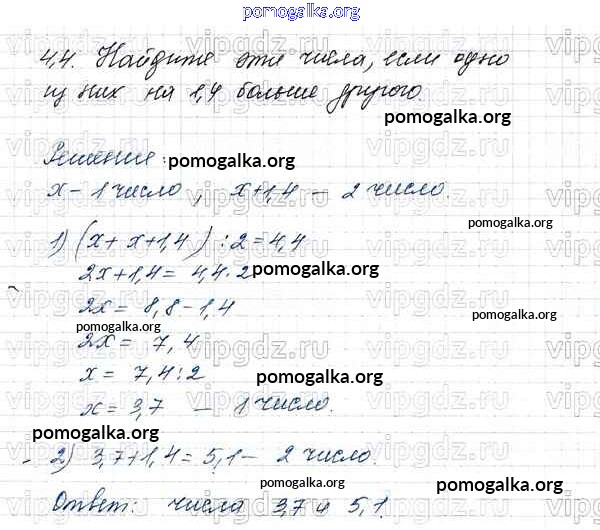 pomogalka.org
4,4. Найдите эти числа, если одно
из них на 1,4 больше другого.
pomogalka.org
Решение: pomogalka.org
x - 1 число, x+1,4 - 2 число.
pomogalka.org
1) (x + x+1,4) : 2 = 4,4
2x+1,4 = 4,4·2 pomogalka.org
2x = 8,8-1,4
pomogalka.org
pomogalka.org
2x = 7,4
x = 7,4:2
pomogalka.org
x = 3,7 - 1 число.
pomogalka.org
2) 3,7+1,4 = 5,1 - 2 число.
pomogalka.org
pomogalka.org
Ответ: числа 3,7 и 5,1.
vipgdz.ru